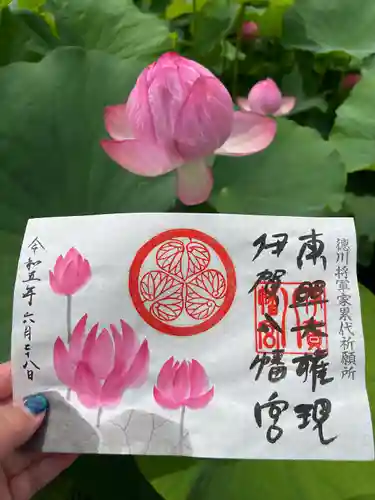 徳川将軍家累代祈願所
東照大権現
伊賀八幡宮
令和五年六月二十八日